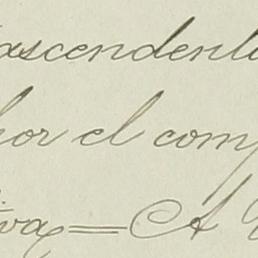 ascendente
por el comp
iva = A